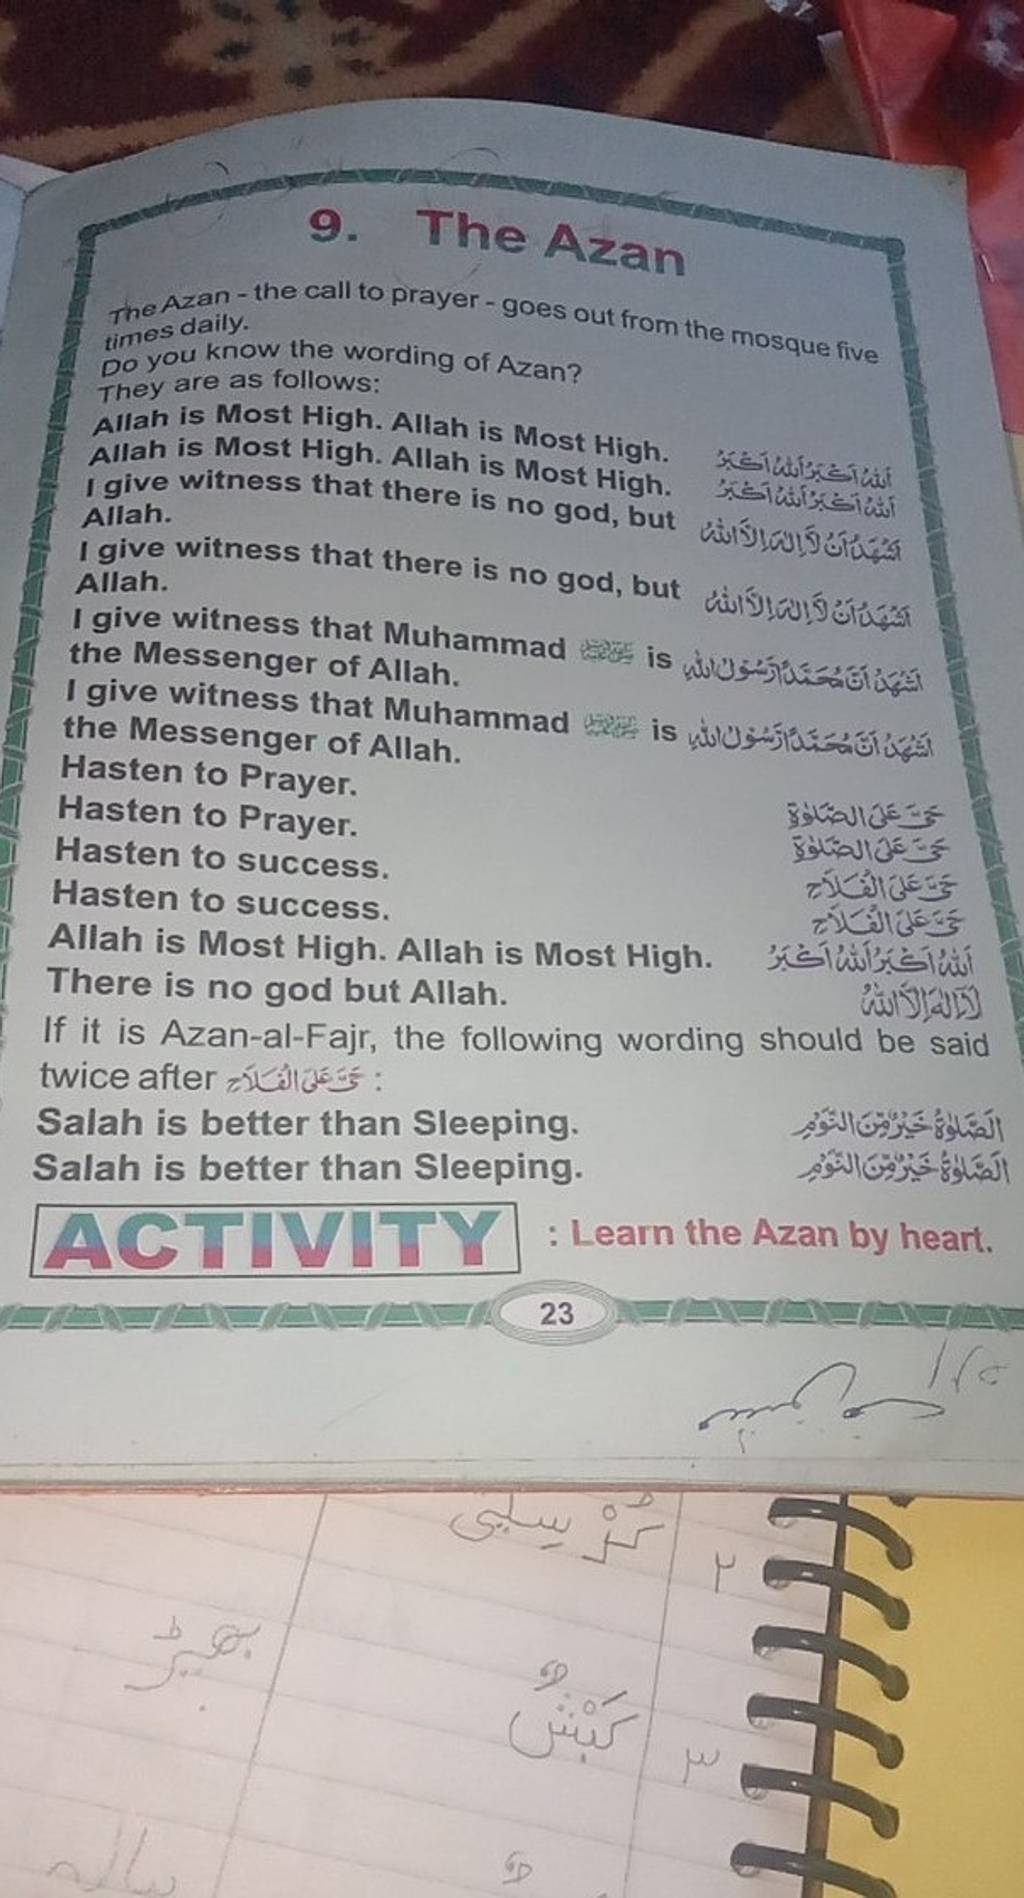 9. The Azan
The Azan - the call to prayer - goes out from the mosque five
times daily.
Do you know the wording of Azan?
They are as follows:
Allah is Most High. Allah is Most High. اَللهُ اَكْبَرُ اَللهُ اَكْبَرُ
Allah is Most High. Allah is Most High. اَللهُ اَكْبَرُ اَللهُ اَكْبَرُ
I give witness that there is no god, but اَشْهَدُ اَنْ لَّا اِلٰهَ اِلَّا اللهُ
Allah.
I give witness that there is no god, but اَشْهَدُ اَنْ لَّا اِلٰهَ اِلَّا اللهُ
Allah.
I give witness that Muhammad ﷺ is اَشْهَدُ اَنَّ مُحَمَّدًا رَّسُوْلُ اللهِ
the Messenger of Allah.
I give witness that Muhammad ﷺ is اَشْهَدُ اَنَّ مُحَمَّدًا رَّسُوْلُ اللهِ
the Messenger of Allah.
Hasten to Prayer.
Hasten to Prayer. حَيَّ عَلَى الصَّلٰوةِ
Hasten to success. حَيَّ عَلَى الصَّلٰوةِ
Hasten to success. حَيَّ عَلَى الْفَلَاحِ
حَيَّ عَلَى الْفَلَاحِ
Allah is Most High. Allah is Most High. اَللهُ اَكْبَرُ اَللهُ اَكْبَرُ
There is no god but Allah. لَا اِلٰهَ اِلَّا اللهُ
If it is Azan-al-Fajr, the following wording should be said
twice after حَيَّ عَلَى الْفَلَاحِ :
Salah is better than Sleeping. اَلصَّلٰوةُ خَيْرٌ مِّنَ النَّوْمِ
Salah is better than Sleeping. اَلصَّلٰوةُ خَيْرٌ مِّنَ النَّوْمِ
ACTIVITY : Learn the Azan by heart.
23
۲
۳ كَبْشٌ بھیڑ